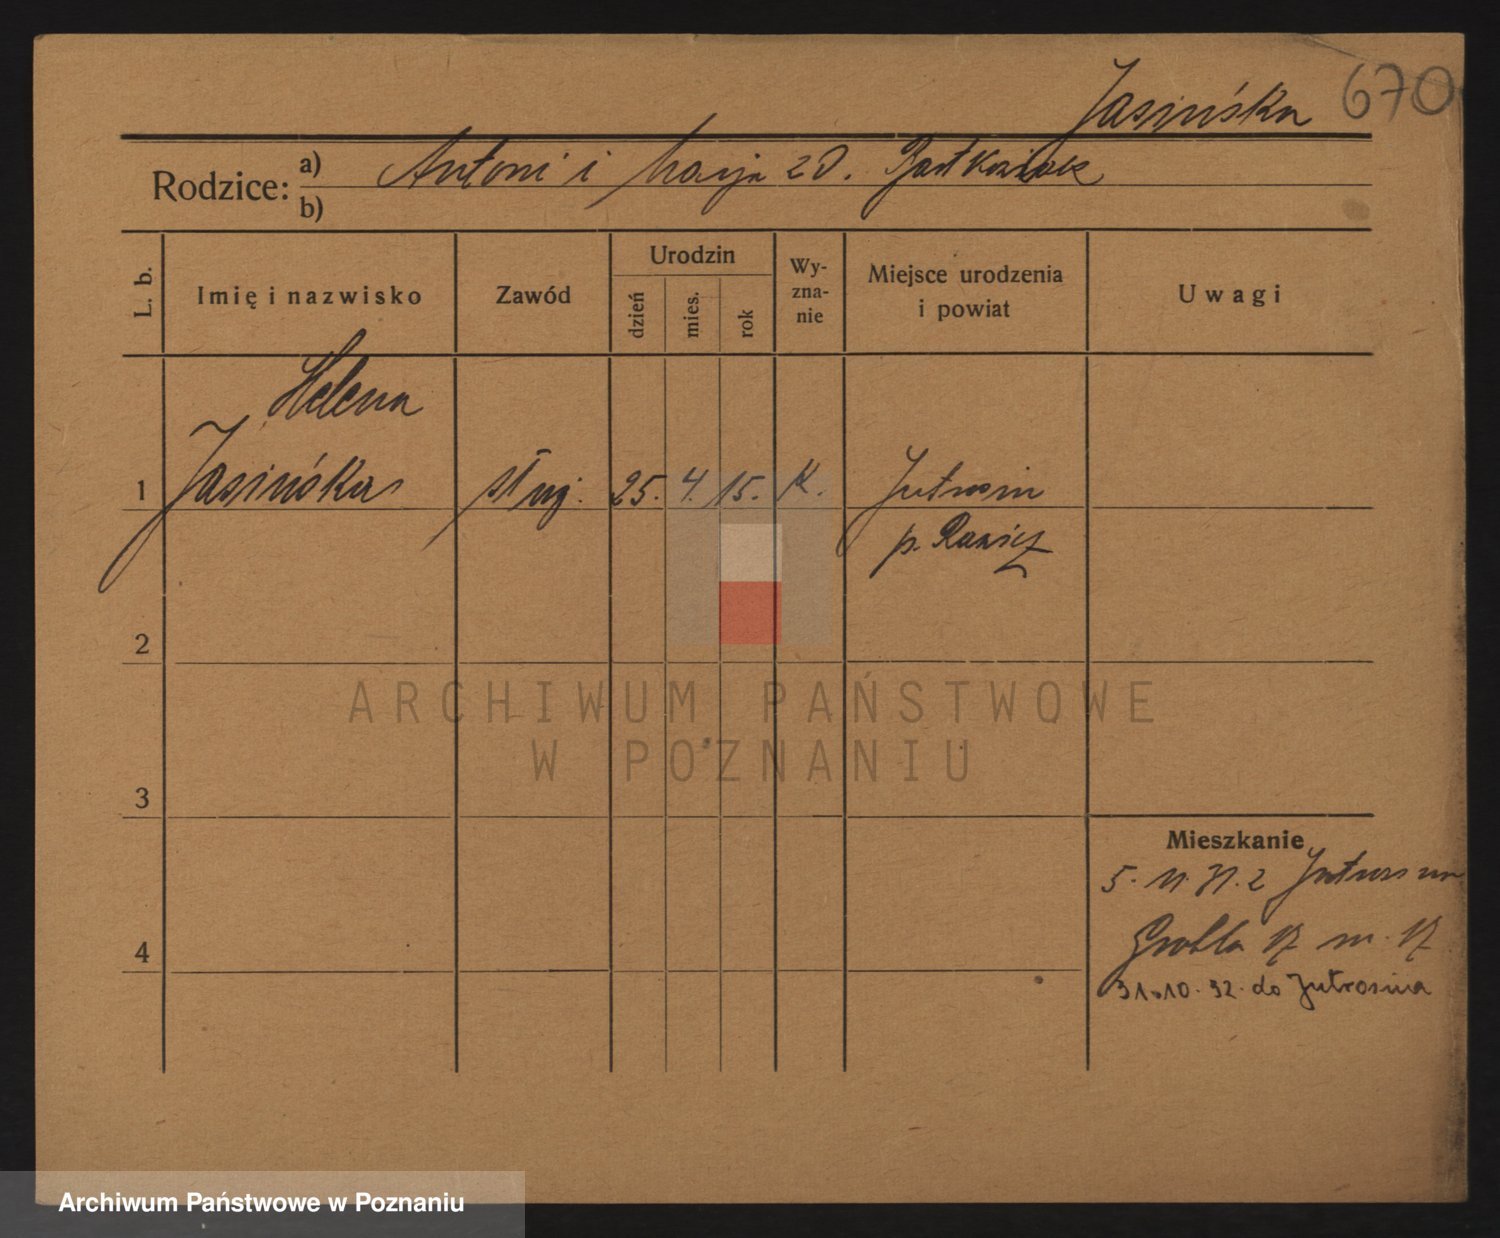 Jasińska 670
Rodzice: a) Antoni i Marja z d. Bartkowiak
b)
L. b. Imię i nazwisko Zawód Urodzin dzień mies. rok Wy-zna-nie Miejsce urodzenia i powiat Uwagi
Helena
1 Jasińska służ. 25. 4. 15. K. Jutrosin
p. Rawicz
2
ARCHIWUM PAŃSTWOWE
W POZNANIU
3
Mieszkanie
5. 11. 31. z Jutrosina
Grobla 17 m. 17
4
31.10.32. do Jutrosina
Archiwum Państwowe w Poznaniu